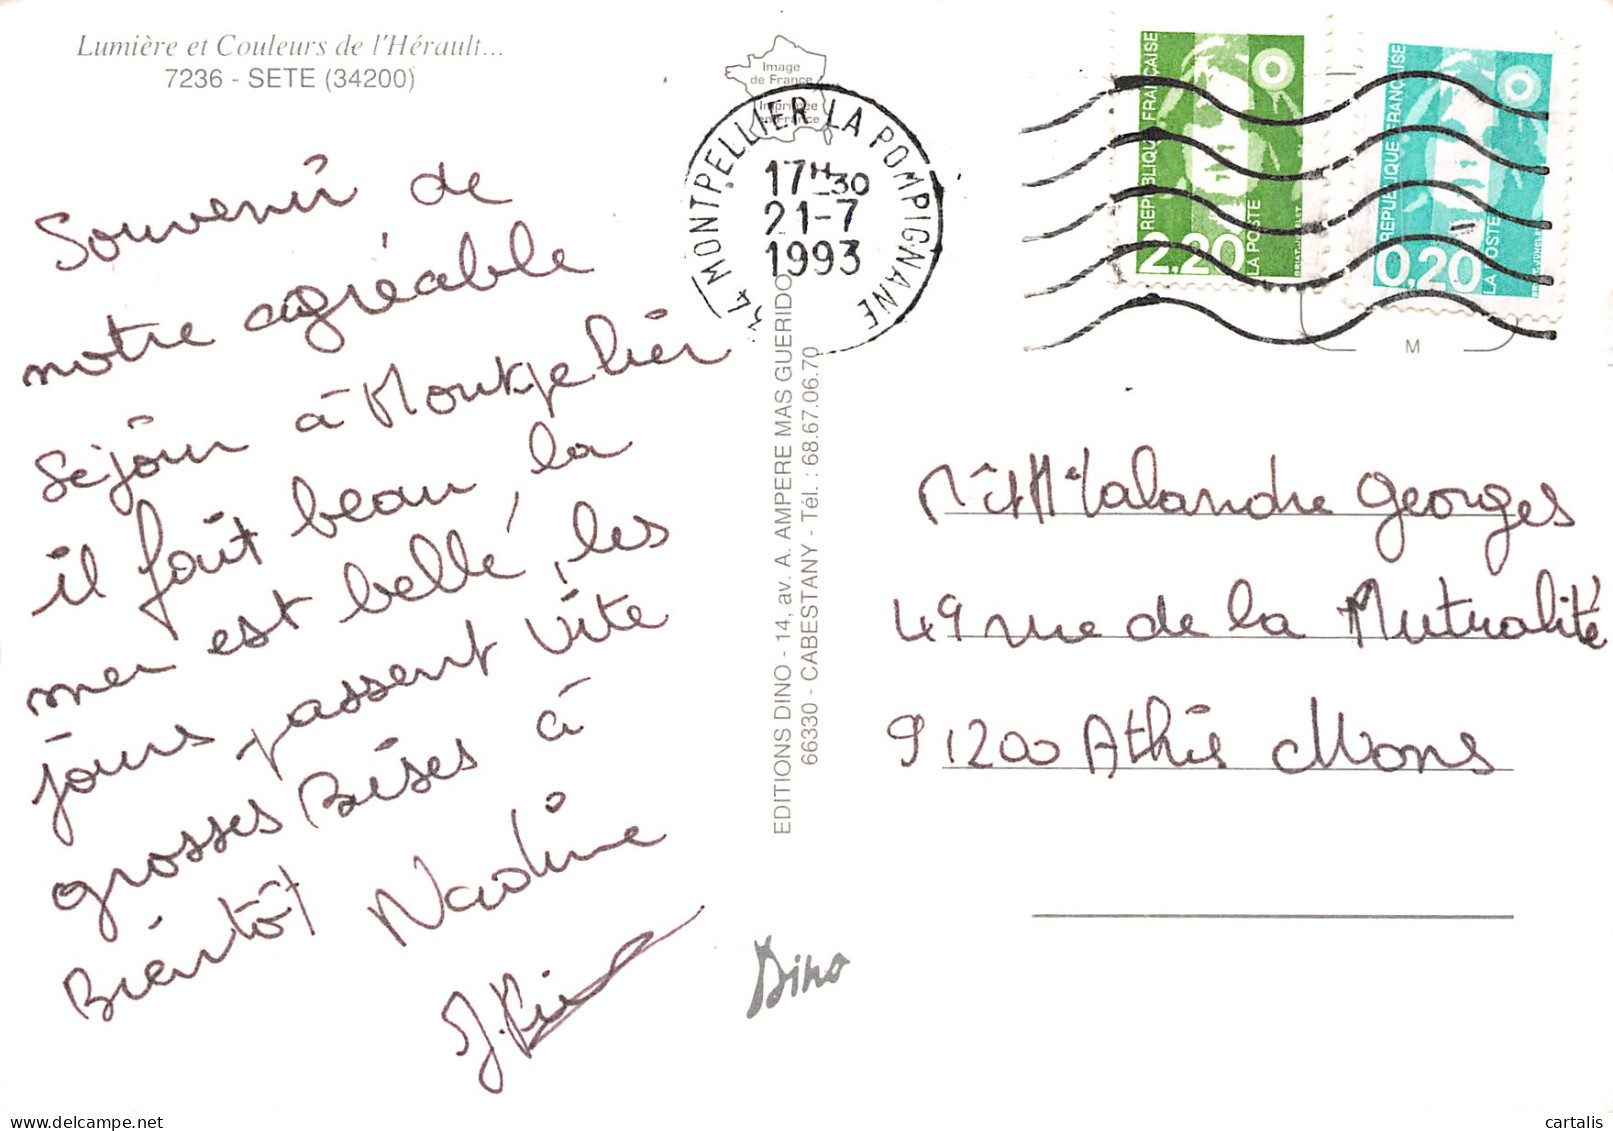 Lumière et Couleurs de l'Hérault...
7236 - SETE (34200)
Souvenir de
notre agréable
séjour à Montpelier
il fait beau, la
mer est belle, les
jours passent vite
grosses Bises à
Bientôt Nadine
Image
de France
Imprimée
en France
34 MONTPELLIER LA POMPIGNANE
17H30
21-7
1993
EDITIONS DINO - 14, av. A. AMPERE MAS GUERIDO
66330 - CABESTANY - Tél. : 68.67.06.70
Dino
REPUBLIQUE FRANÇAISE
2,20
LA POSTE
REPUBLIQUE FRANÇAISE
0,20
LA POSTE
M
Lalandre Georges
49 rue de la Mutualité
91200 Athis Mons
cartalis
www.delcampe.net